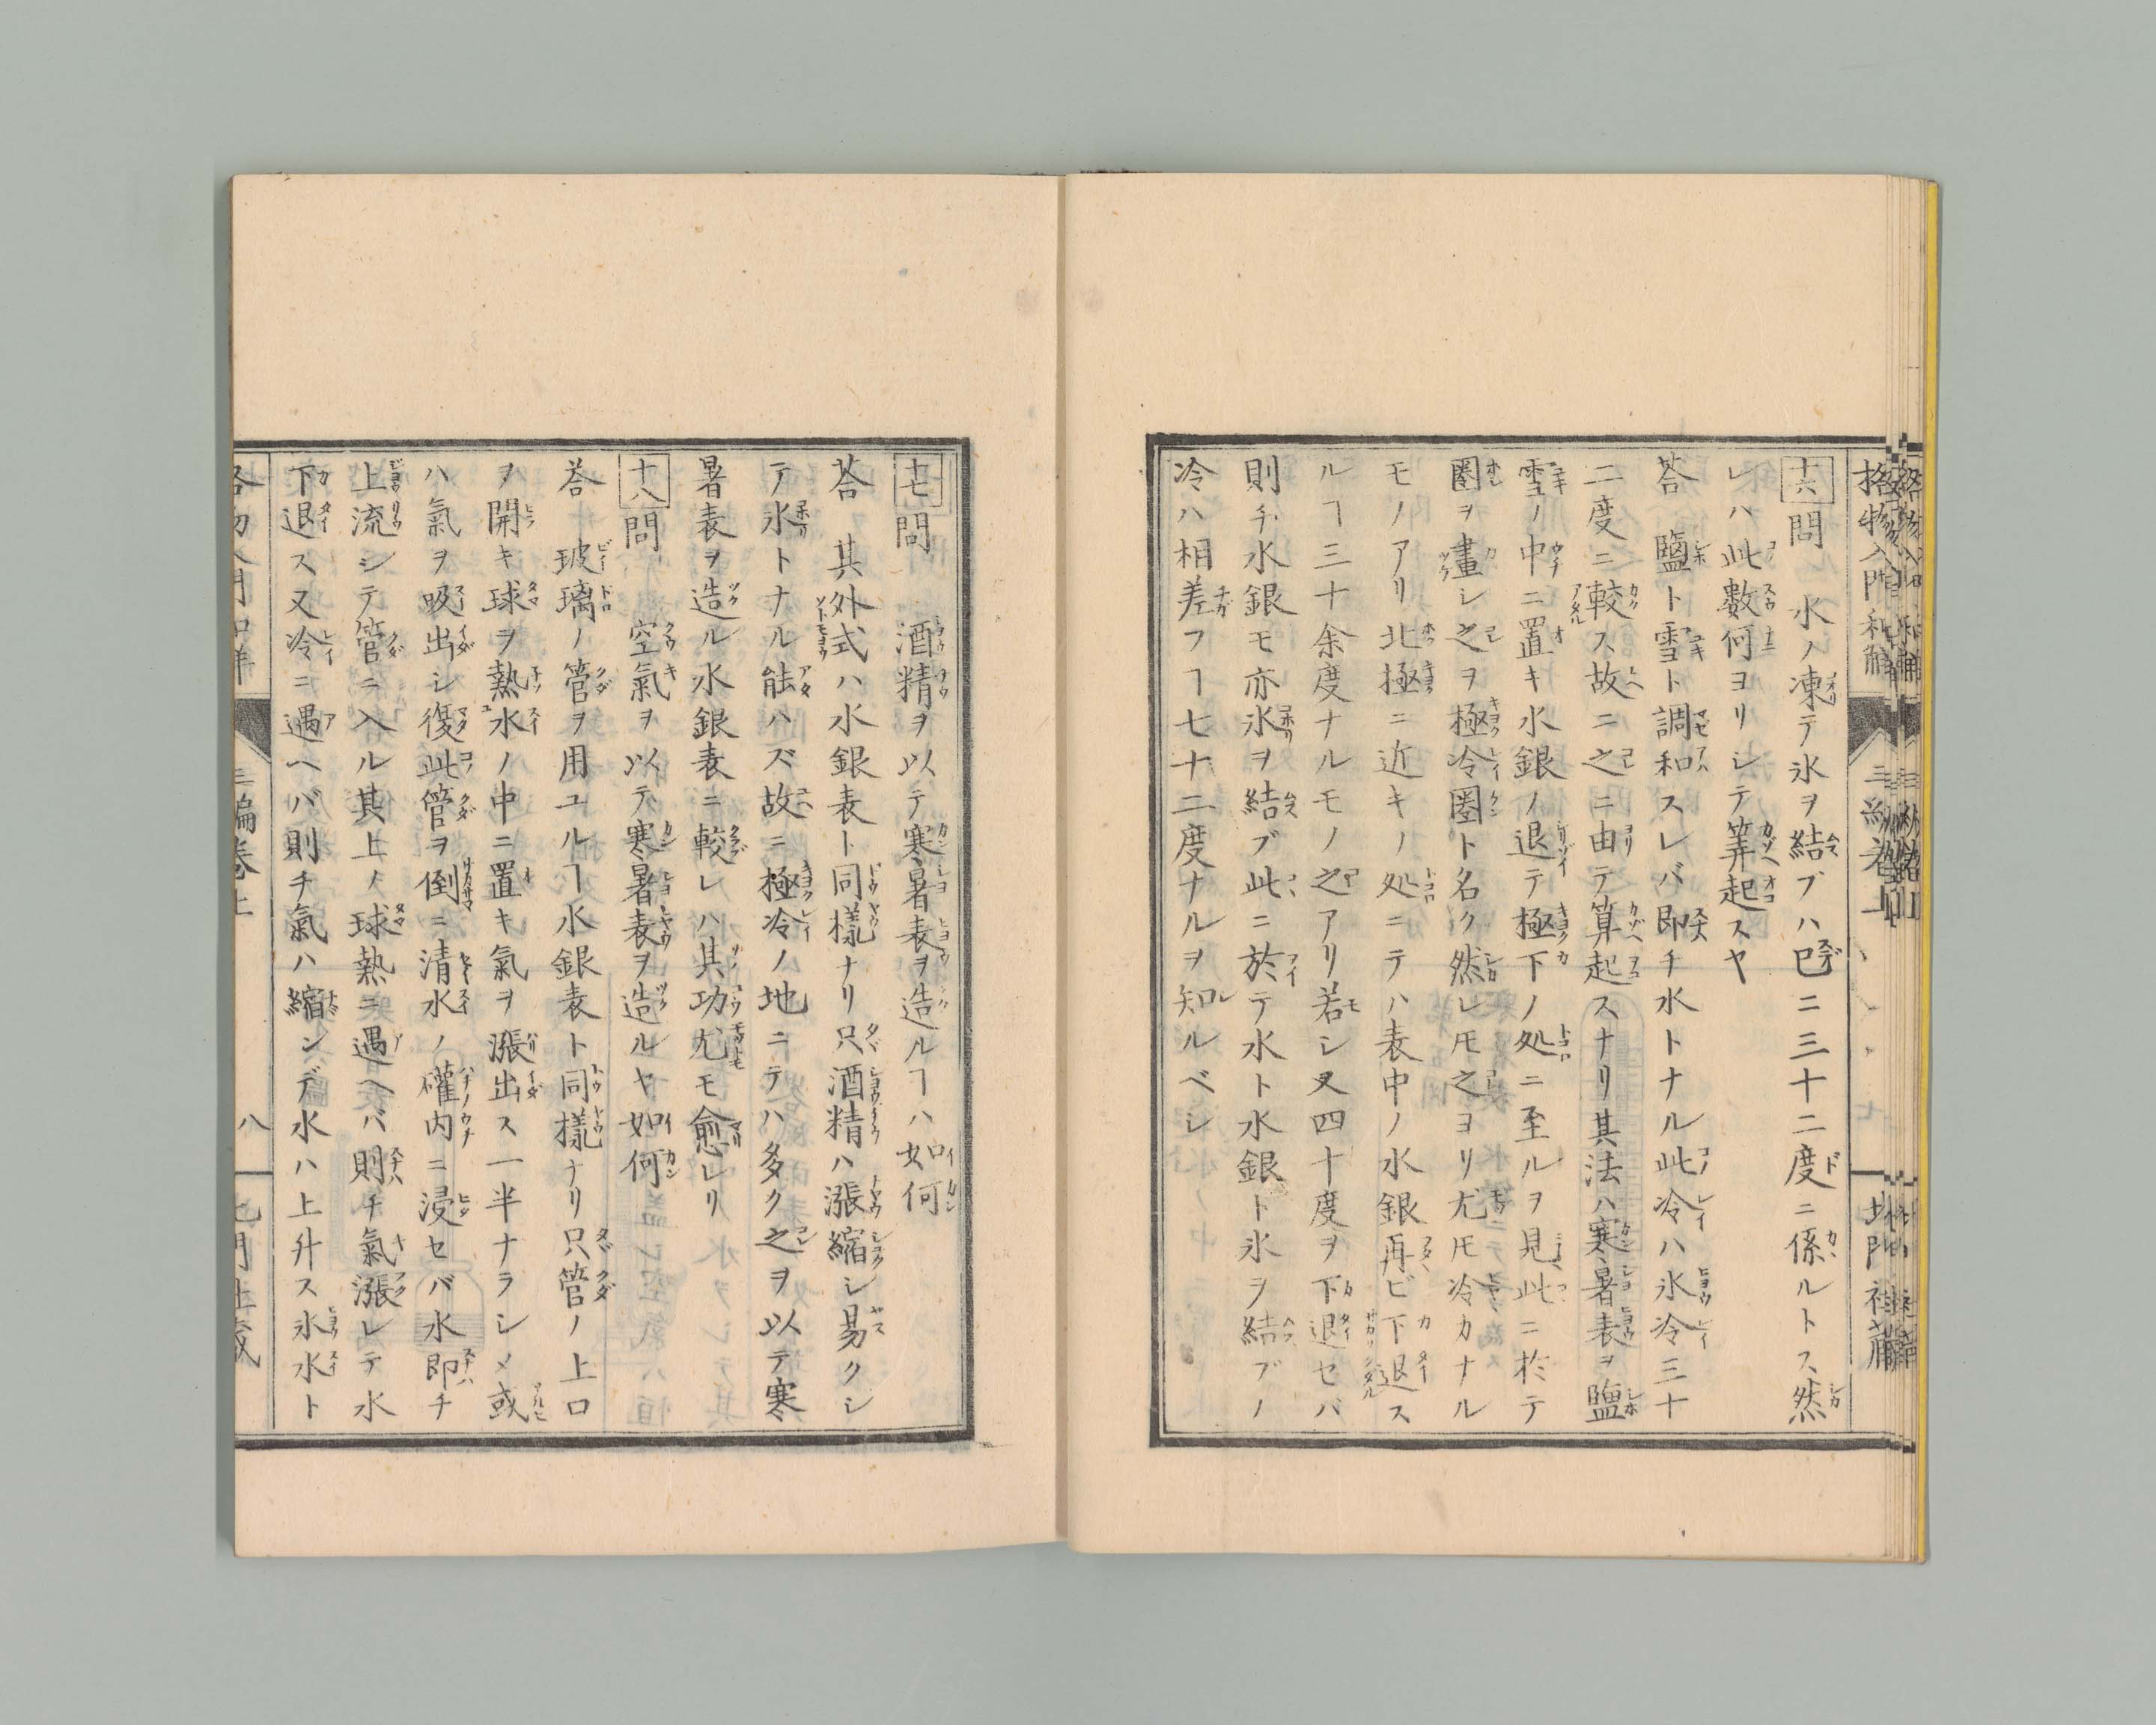 十六問 水ノ凍テ氷ヲ結ブハ已ニ三十二度ニ係ルトス然
レハ此數何ヨリシテ筭起スヤ
荅 鹽ト雪ト調和スレバ即チ水トナル此冷ハ氷冷三十
二度ニ較ス故ニ之ニ由テ算起スナリ其法ハ寒暑表ヲ鹽
雪ノ中ニ置キ水銀ノ退テ極下ノ処ニ至ルヲ見此ニ於テ
圏ヲ畫シ之ヲ極冷圏ト名ク然レ𪜈之ヨリ尤𪜈冷カナル
モノアリ北極ニ近キノ処ニテハ表中ノ水銀再ビ下退ス
ルヿ三十余度ナルモノ之アリ若シ又四十度ヲ下退セバ
則チ水銀モ亦氷ヲ結ブ此ニ於テ水ト水銀ト氷ヲ結ブノ
冷ハ相差フヿ七十二度ナルヲ知ルベシ
十七問 酒精ヲ以テ寒暑表ヲ造ルヿハ如何
荅 其外式ハ水銀表ト同樣ナリ只酒精ハ漲縮シ易クシ
テ氷トナル能ハズ故ニ極冷ノ地ニテハ多ク之ヲ以テ寒
暑表ヲ造ル水銀表ニ較レハ其功尤モ愈レリ
十八問 空氣ヲ以テ寒暑表ヲ造ルヤ如何
荅 玻璃ノ管ヲ用ユルヿ水銀表ト同樣ナリ只管ノ上口
ヲ開キ球ヲ熱水ノ中ニ置キ氣ヲ漲出ス一半ナラシメ或
ハ氣ヲ吸出シ復此管ヲ倒ニ清水ノ罐内ニ浸セバ水即チ
上流シテ管ニ入ル其上ノ球熱ニ遇ヘバ則チ氣漲レテ水
下退ス又冷ニ遇ヘバ則チ氣ハ縮ンデ水ハ上升ス氷水ト
三編卷上
八